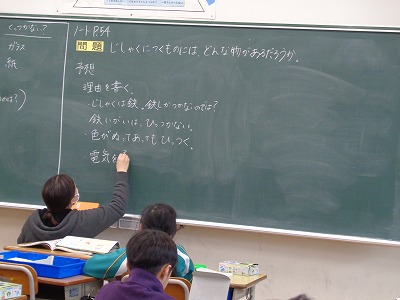 くっつかない?
ガラス
紙
ノートP.54
問題 じしゃくにつくものには、どんな物があるだろうか。
予想
理由を書く。
・じしゃくは鉄。鉄しかつかないのでは?
鉄いがいは、ひっつかない。
・色がぬってあってもひっつく。
電気を